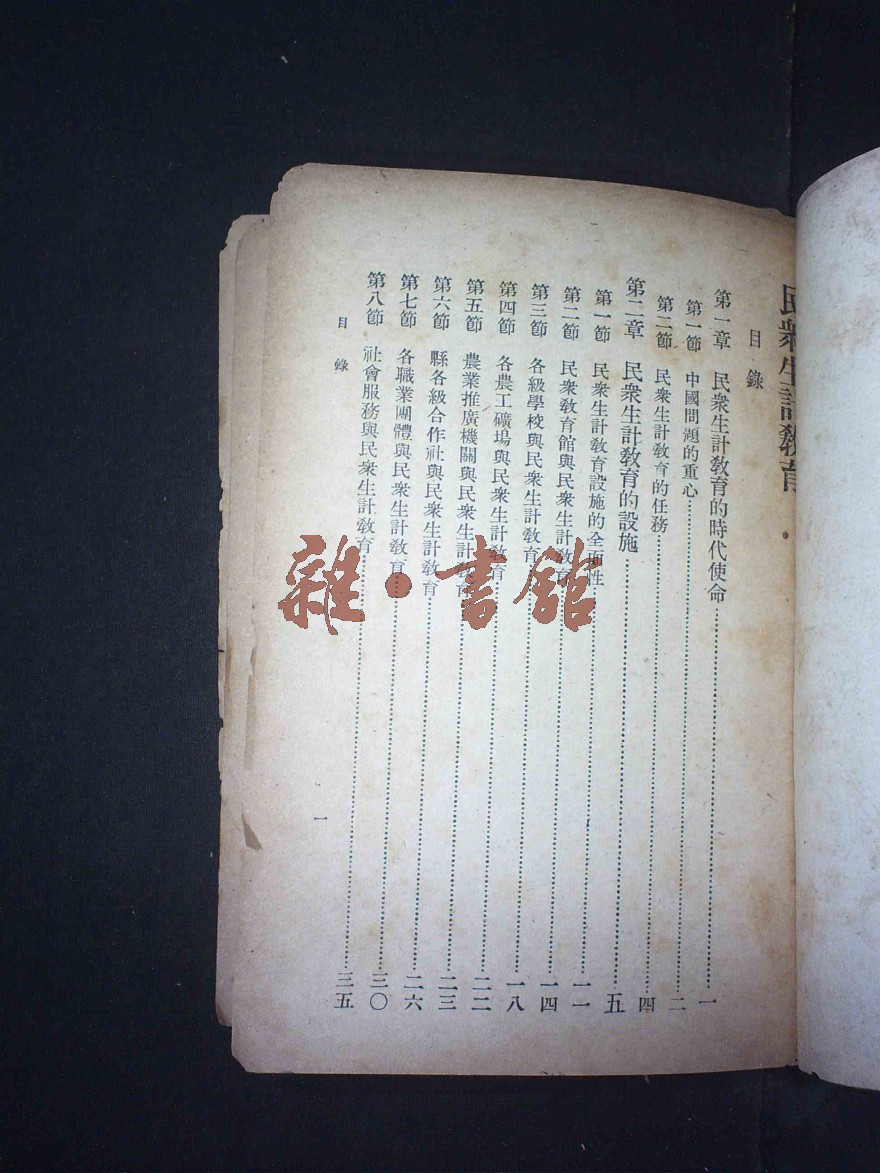 民衆生計敎育
目錄
第一章 民衆生計敎育的時代使命……一
第一節 中國問題的重心……二
第二節 民衆生計敎育的任務……四
第二章 民衆生計敎育的設施……五
第一節 民衆生計敎育設施的全面性……一一
第二節 民衆敎育館與民衆生計敎育……一四
第三節 各級學校與民衆生計敎育……一八
第四節 各農工礦場與民衆生計敎育……二二
第五節 農業推廣機關與民衆生計敎育……二三
第六節 縣各級合作社與民衆生計敎育……二六
第七節 各職業團體與民衆生計敎育……三〇
第八節 社會服務與民衆生計敎育……三五
目錄
一
雜·書館